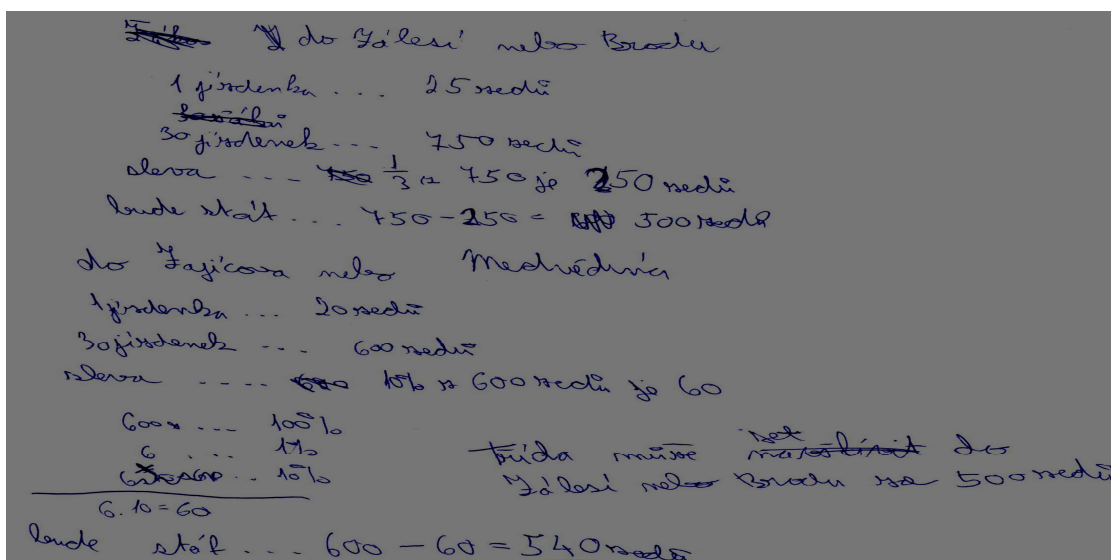 do Zálesí nebo Brodu
1 jízdenka ... 25 sedů
30 jízdenek ... 750 sedů
sleva ... 1/3 z 750 je 250 sedů
bude stát ... 750 - 250 = 500 sedů
do Zajícova nebo Medvědína
1 jízdenka ... 20 sedů
30 jízdenek ... 600 sedů
sleva .... 10% z 600 sedů je 60
600 ... 100%
6 .... 1%
.. 10%
6.10 = 60
třída může jet do
Zálesí nebo Brodu za 500 sedů
bude stát ... 600 - 60 = 540 sedů